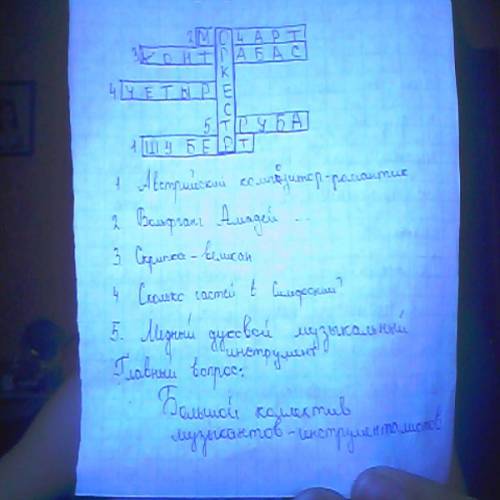 2 МОЦАРТ
3 КОНТРАБАС
К
4 ЧЕТЫРЕ
С
5 ТРУБА
1 ШУБЕРТ
1 Австрийский композитор-романтик
2 Вольфганг Амадей ...
3 Скрипка-великан
4 Сколько частей в Симфонии?
5. Медный духовой музыкальный
инструмент
Главный вопрос:
Большой коллектив
музыкантов-инструменталистов